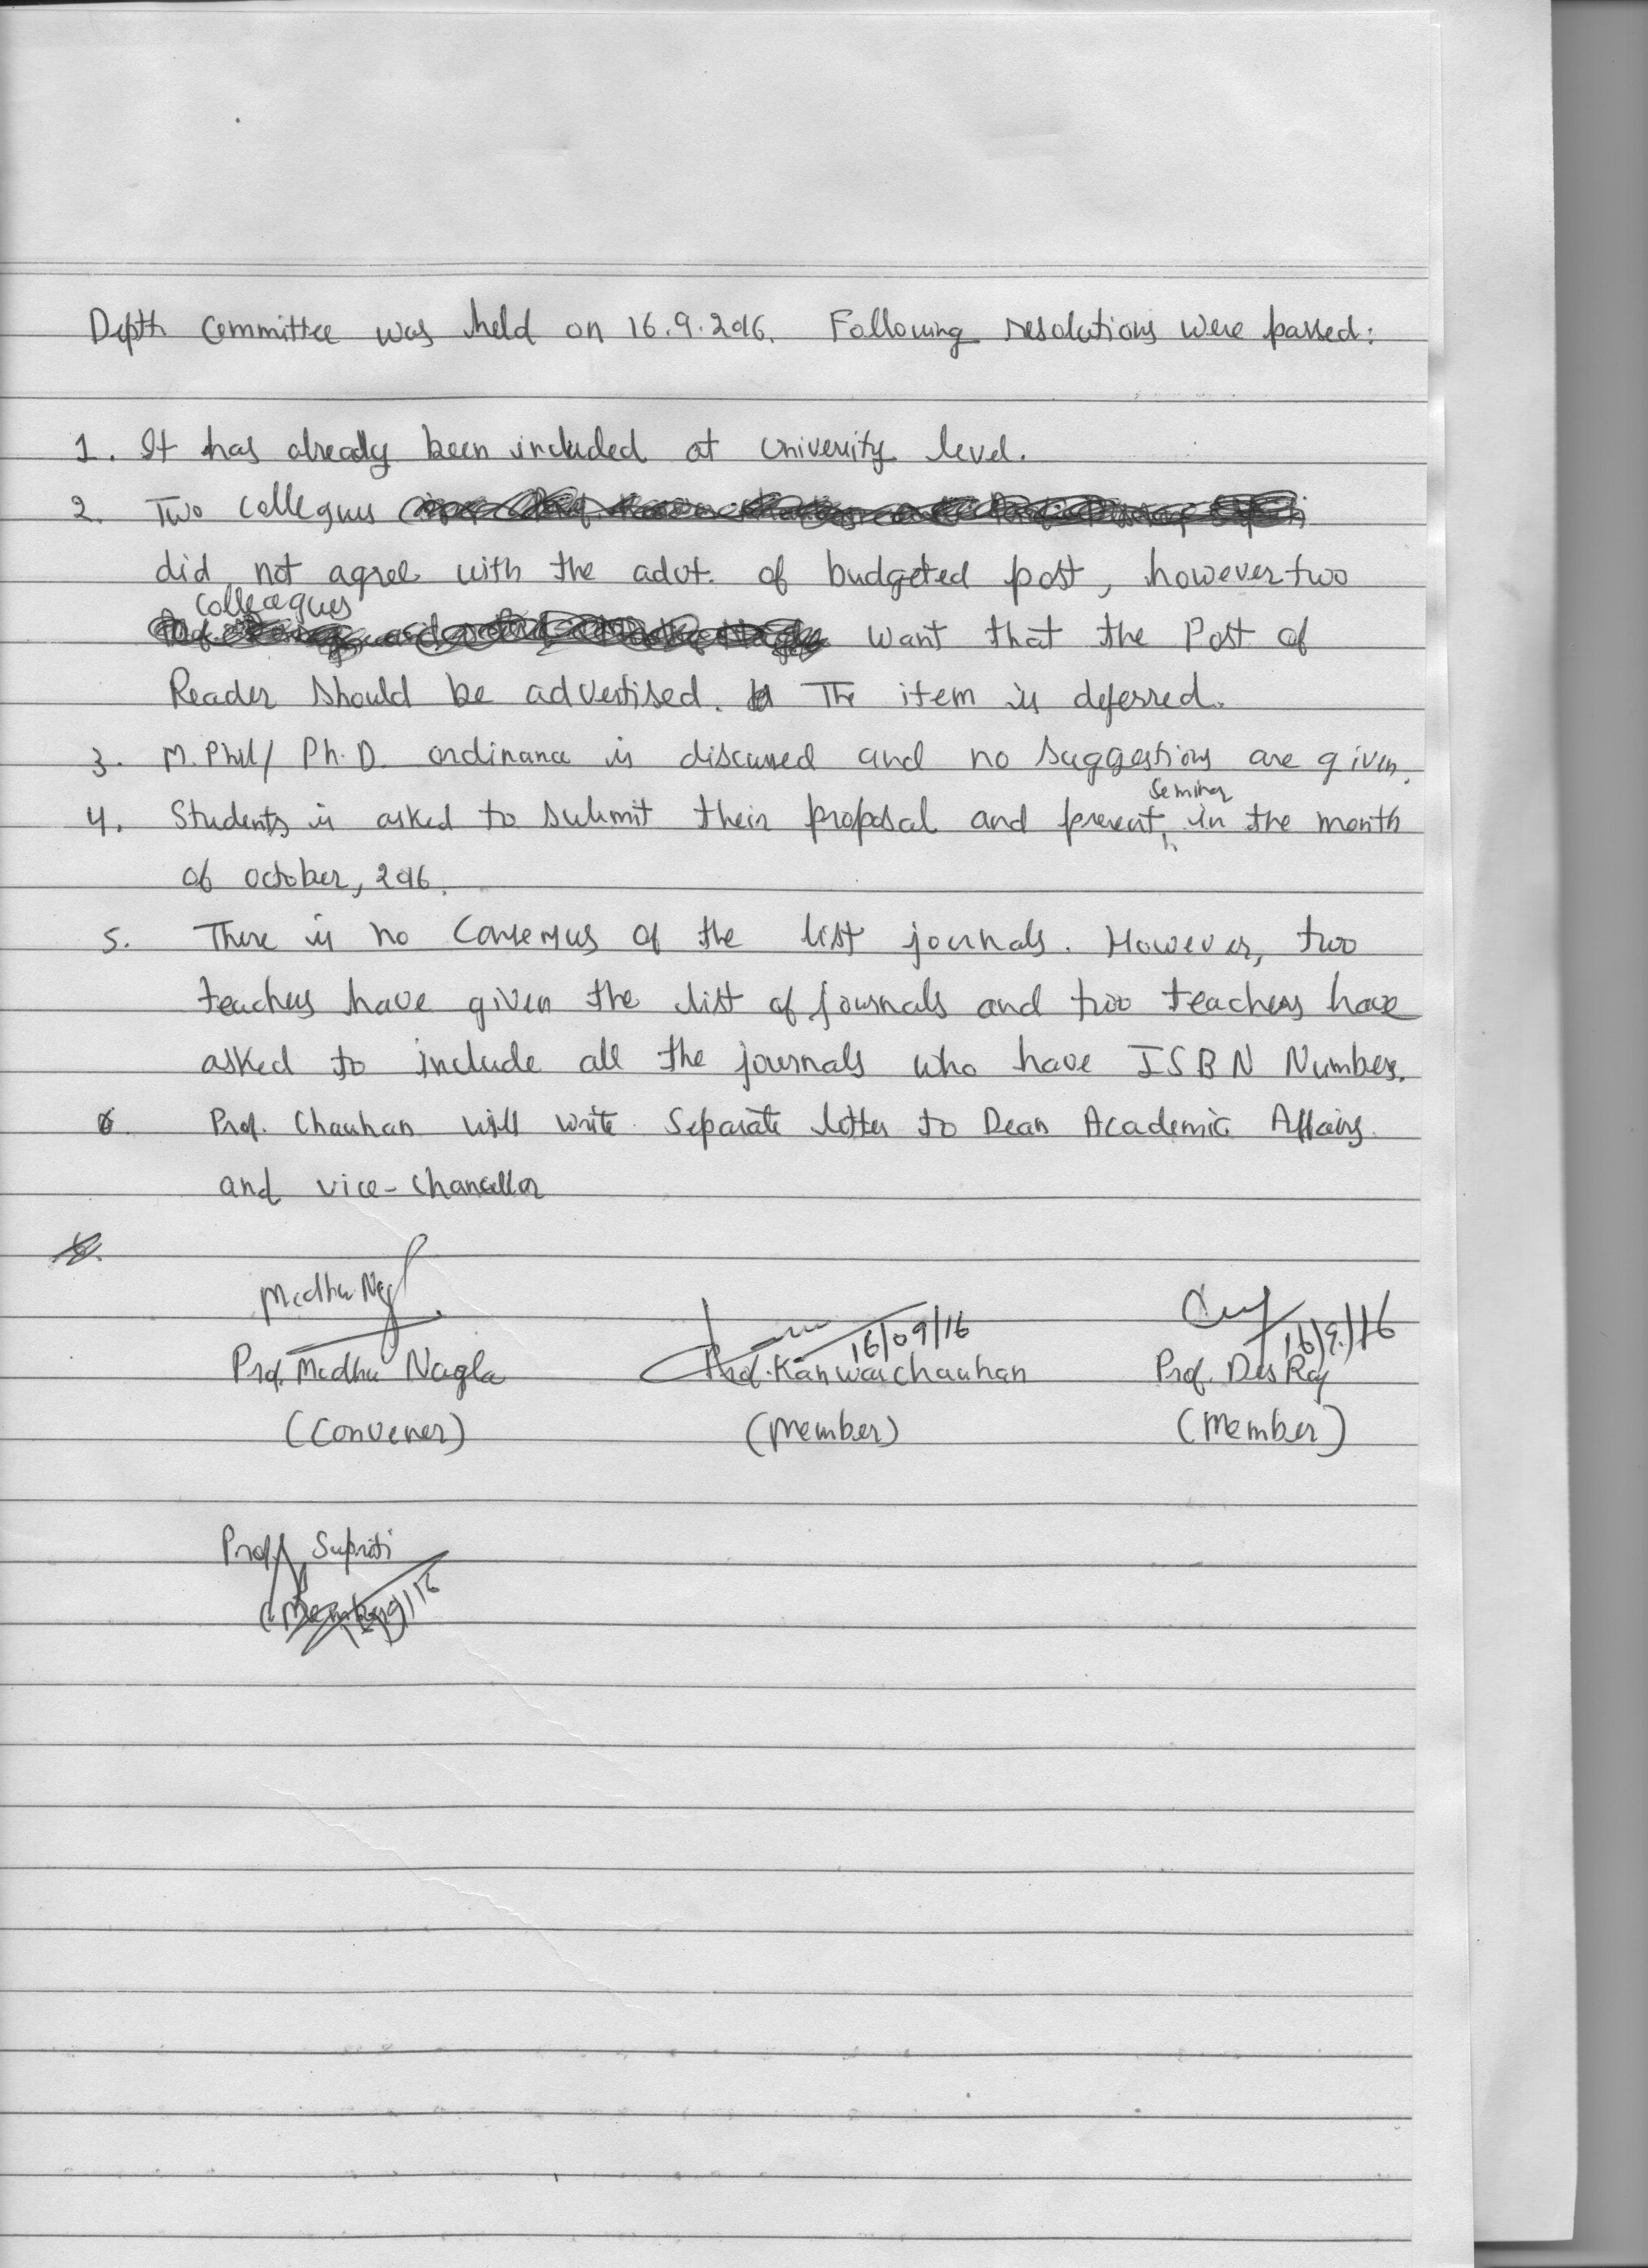 Deptt. Committee was held on 16.9.2016. Following resolutions were passed:
1. It has already been included at University level.
2. Two collegues
did not agree with the advt. of budgeted post, however two
colleagues
want that the Post of
Reader should be advertised. The item is deferred.
3. M.Phil/ Ph.D. ordinance is discussed and no suggestions are given.
Seminar
4. Students is asked to submit their proposal and present in the month
of october, 2016.
5. There is no Consensus of the list journals. However, two
teachers have given the list of journals and two teachers have
asked to include all the journals who have ISBN Number.
6. Prof. Chauhan will write Separate letter to Dean Academic Affairs
and vice-Chancellor
6.
Madhu Nagla
16/09/16
16/9/16
Prof. Madhu Nagla Prof. Kanwar Chauhan Prof. Des Raj
(Convener) (Member) (Member)
Prof. Supriti
(Member)
16/9/16